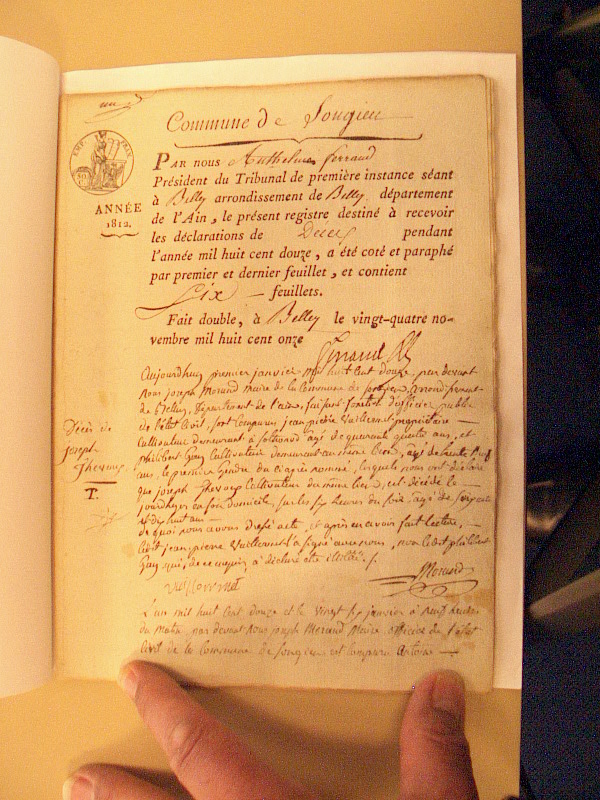 Commune de Songieu
EMP. FRAN
PAR nous Anthelme ferrand
Président du Tribunal de première instance séant
à Belley arrondissement de Belley, département
de l'Ain, le présent registre destiné à recevoir
les déclarations de Décès pendant
l'année mil huit cent douze, a été coté et paraphé
par premier et dernier feuillet, et contient
Six feuillets.
Fait double, à Belley le vingt-quatre no-
vembre mil huit cent onze
ANNÉE
1812.
Ferrand
Décès de
joseph
T.
Aujourdhuy premier janvier mil huit Cent douze, par devant
Nous joseph Morand Maire de la Commune de songieu arrondissement
de Belley, Département de l'ain, faisant fonction d'officier public
de l'état Civil, sont Comparus jean pierre Vuillermet propriétaire
Cultivateur demeurant à sothonod agé de quarante quatre ans, et
philibert Guy Cultivateur demeurant au même lieu, agé de
ans, le premier Gendre du ci après nommé, lesquels nous ont déclaré
que joseph Cultivateur du même lieu, est décédé le
jourdhuy en son domicile, sur les six heures du soir, agé de soixante
et dix huit ans
de quoi nous avons Dressé acte, et après en avoir fait lecture,
ledit jean pierre Vuillermet l'a signé avec nous, non ledit philibert
Guy qui, de ce enquis a déclaré être illitéré.
Vuillermet Morand
L'an mil huit Cent douze et le Vingt six janvier à neuf heures
du Matin par devant Nous joseph Morand Maire officier de l'état
Civil de la Commune de songieu est Comparu Antoine